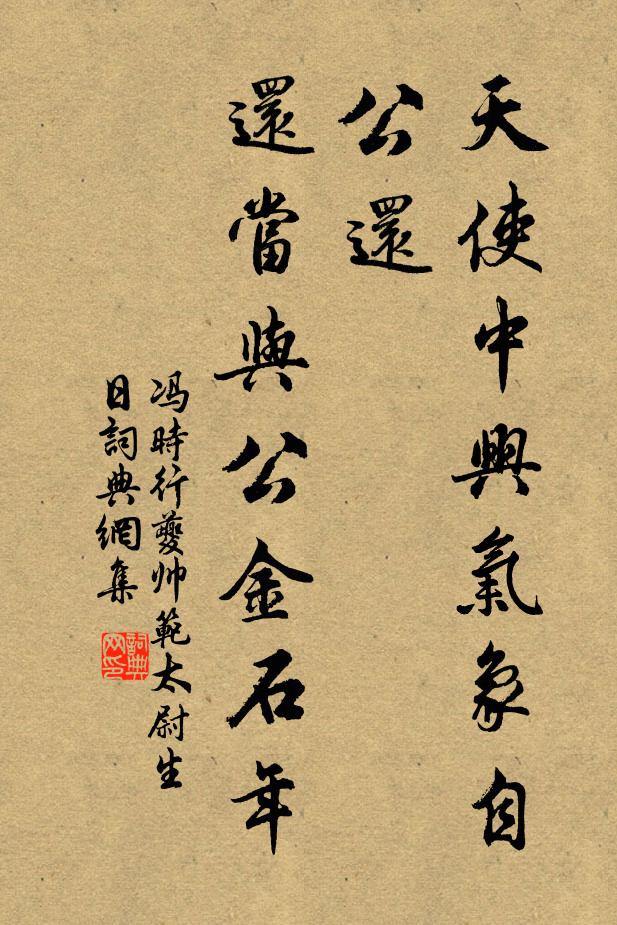 天使中興氣象自
公還
還當與公金石年
冯時行夔帅範太尉生
日詞典網集
詞典网印